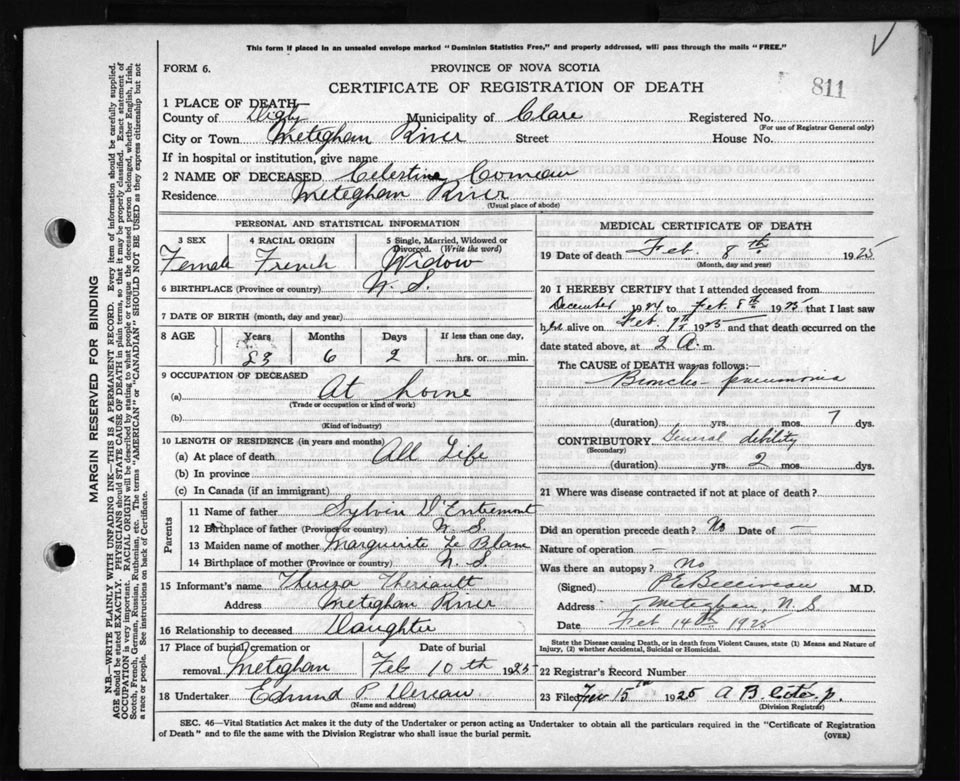 This form if placed in an unsealed envelope marked "Dominion Statistics Free," and properly addressed, will pass through the mails "FREE."
V
FORM 6.
PROVINCE OF NOVA SCOTIA
CERTIFICATE OF REGISTRATION OF DEATH
811
1 PLACE OF DEATH—
County of Digby Municipality of Clare Registered No.
(For use of Registrar General only)
City or Town Meteghan River Street House No.
If in hospital or institution, give name
2 NAME OF DECEASED Celestine Comeau
Residence Meteghan River
(Usual place of abode)
PERSONAL AND STATISTICAL INFORMATION
3 SEX 4 RACIAL ORIGIN 5 Single, Married, Widowed or Divorced. (Write the word)
Female French Widow
6 BIRTHPLACE (Province or country) N. S.
7 DATE OF BIRTH (month, day and year)
8 AGE Years Months Days If less than one day,
83 6 2 hrs. or min.
9 OCCUPATION OF DECEASED
(a) At home
(Trade or occupation or kind of work)
(b)
(Kind of industry)
10 LENGTH OF RESIDENCE (in years and months)
(a) At place of death All Life
(b) In province
(c) In Canada (if an immigrant)
Parents
11 Name of father Sylvin D'Entremont
12 Birthplace of father (Province or country) N. S.
13 Maiden name of mother Marguerite Le Blanc
14 Birthplace of mother (Province or country) N. S.
15 Informant's name Theresa Theriault
Address Meteghan River
16 Relationship to deceased Daughter
17 Place of burial, cremation or removal Meteghan Date of burial Feb 10th 1925
18 Undertaker Edmund P. Deveau
(Name and address)
MEDICAL CERTIFICATE OF DEATH
19 Date of death Feb. 8th 1925
(Month, day and year)
20 I HEREBY CERTIFY that I attended deceased from
December 1924 to Feb. 8th 1925 that I last saw
her alive on Feb. 7th 1925 and that death occurred on
date stated above, at 2 A. m.
The CAUSE of DEATH was as follows:
Broncho-pneumonia
(duration) yrs. mos. 7 dys.
CONTRIBUTORY General debility
(Secondary)
(duration) yrs. 2 mos. dys.
21 Where was disease contracted if not at place of death?
Did an operation precede death? No Date of —
Nature of operation —
Was there an autopsy? No
(Signed) P E Belliveau M.D.
Address Meteghan, N. S.
Date Feb 14th 1925
State the Disease causing Death, or in death from Violent Causes, state (1) Means and Nature of Injury, (2) whether Accidental, Suicidal or Homicidal.
22 Registrar's Record Number
23 Filed Feb 15th 1925 A B
(Division Registrar)
SEC. 46—Vital Statistics Act makes it the duty of the Undertaker or person acting as Undertaker to obtain all the particulars required in the "Certificate of Registration
of Death" and to file the same with the Division Registrar who shall issue the burial permit.
(OVER)
MARGIN RESERVED FOR BINDING
N.B.—WRITE PLAINLY WITH UNFADING INK—THIS IS A PERMANENT RECORD. Every item of information should be carefully supplied.
AGE should be stated EXACTLY. PHYSICIANS should STATE CAUSE OF DEATH in plain terms, so that it may be properly classified. Exact statement of
OCCUPATION is very important. RACIAL ORIGIN will be described by stating to what people or tongue the deceased person belonged, whether English, Irish,
Scotch, French, German, Russian, Ruthenian, etc. The terms "AMERICAN" or "CANADIAN" SHOULD NOT BE USED as they express citizenship but not
a race or people. See instructions on back of Certificate.